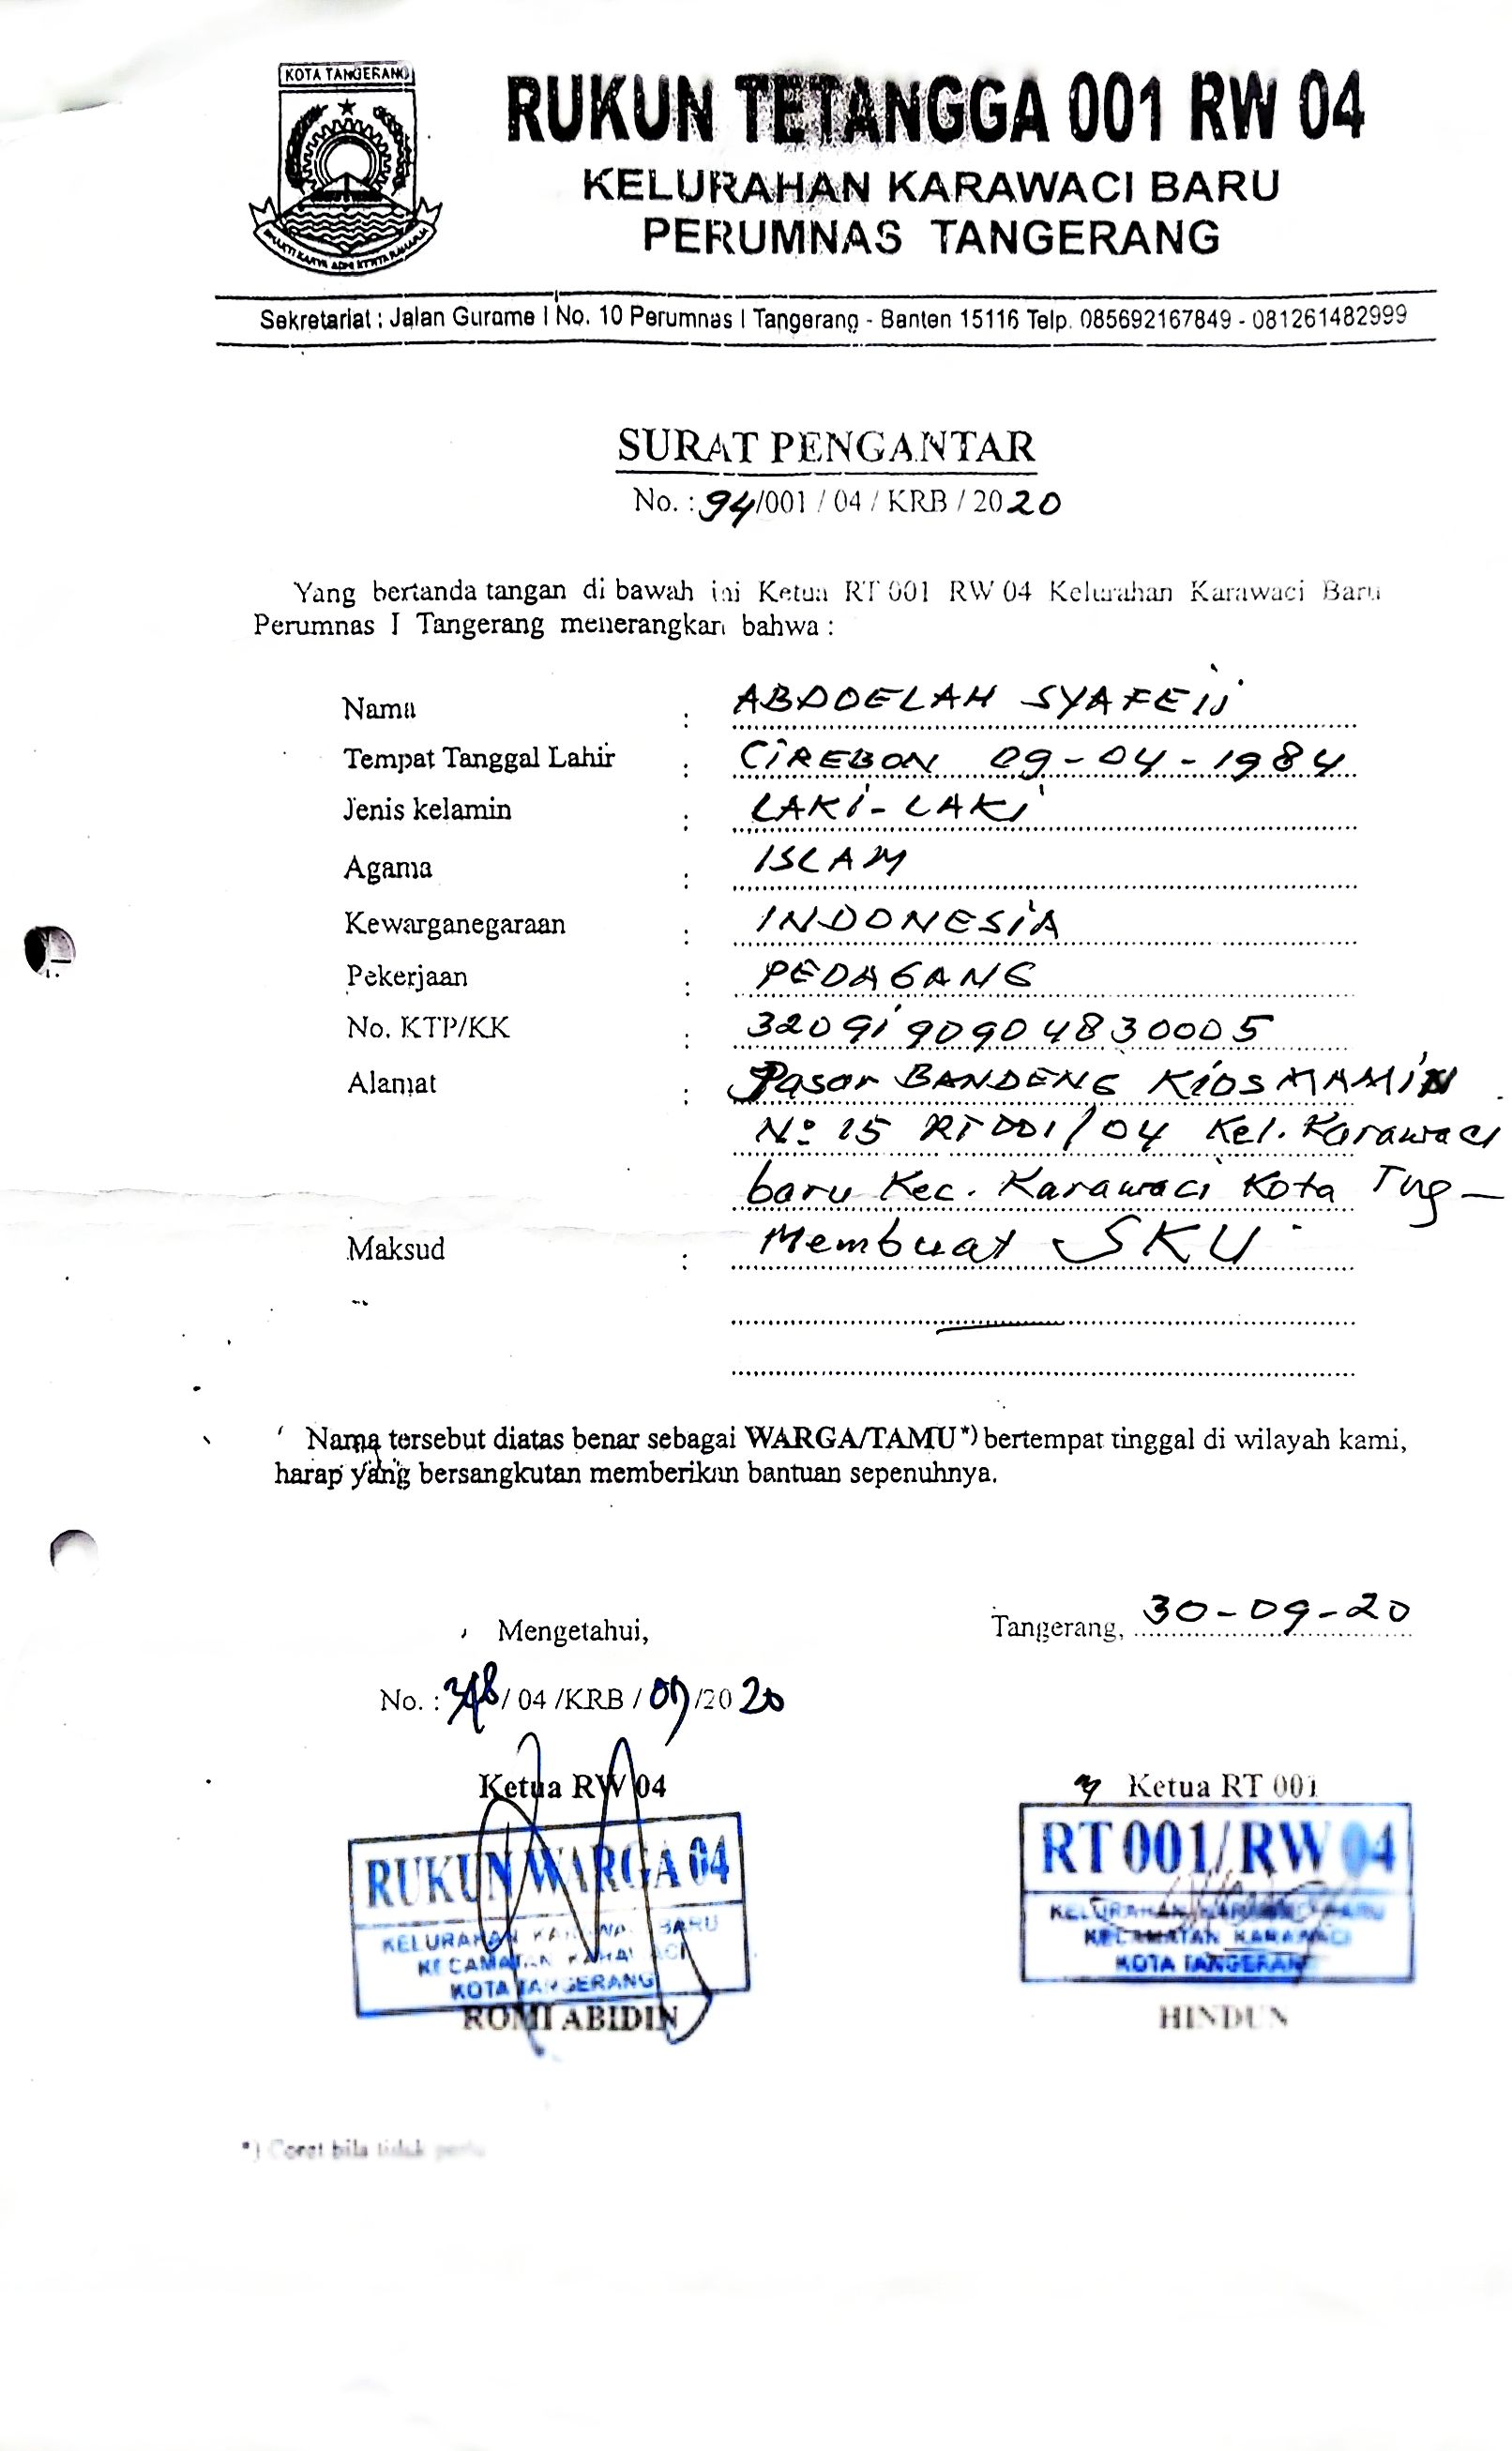 KOTA TANGERANG
RUKUN TETANGGA 001 RW 04
KELURAHAN KARAWACI BARU
PERUMNAS TANGERANG
BHAKTI KARYA ADHI KERTA RAHARJA
Sekretariat : Jalan Gurame I No. 10 Perumnas I Tangerang - Banten 15116 Telp. 085692167849 - 081261482999
SURAT PENGANTAR
No. : 94/001 / 04 / KRB / 2020
Yang bertanda tangan di bawah ini Ketua RT 001 RW 04 Kelurahan Karawaci Baru
Perumnas I Tangerang menerangkan bahwa :
Nama : ABDOELAH SYAFEIJ
Tempat Tanggal Lahir : CIREBON 09-04-1984
Jenis kelamin : LAKI-LAKI
Agama : ISLAM
Kewarganegaraan : INDONESIA
Pekerjaan : PEDAGANG
No. KTP/KK : 3209190904830005
Alamat : Pasar BANDENG KIOS MAMIN
No 15 RT 001/04 Kel. Karawaci
baru Kec. Karawaci Kota Tng
Maksud : Membuat SKU
Nama tersebut diatas benar sebagai WARGA/TAMU*) bertempat tinggal di wilayah kami,
harap yang bersangkutan memberikan bantuan sepenuhnya.
Tangerang, 30-09-20
Mengetahui,
No. : 348/ 04 /KRB / 09/2020
Ketua RW 04
Ketua RT 001
RUKUN WARGA 04
KELURAHAN KARAWACI BARU
KECAMATAN KARAWACI
KOTA TANGERANG
RT 001/RW 04
KELURAHAN KARAWACI BARU
KECAMATAN KARAWACI
KOTA TANGERANG
ROMI ABIDIN
HINDUN
*) Coret bila tidak perlu